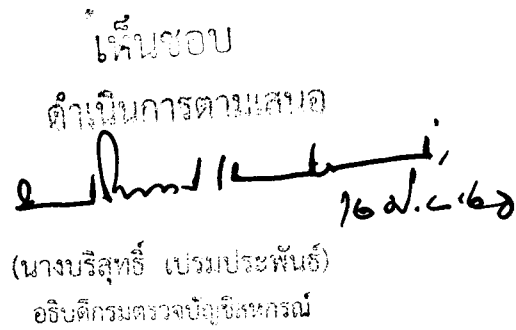 เห็นชอบ
ดำเนินการตามเสนอ
(นางบริสุทธิ์ เปรมประพันธ์)
อธิบดีกรมตรวจบัญชีสหกรณ์